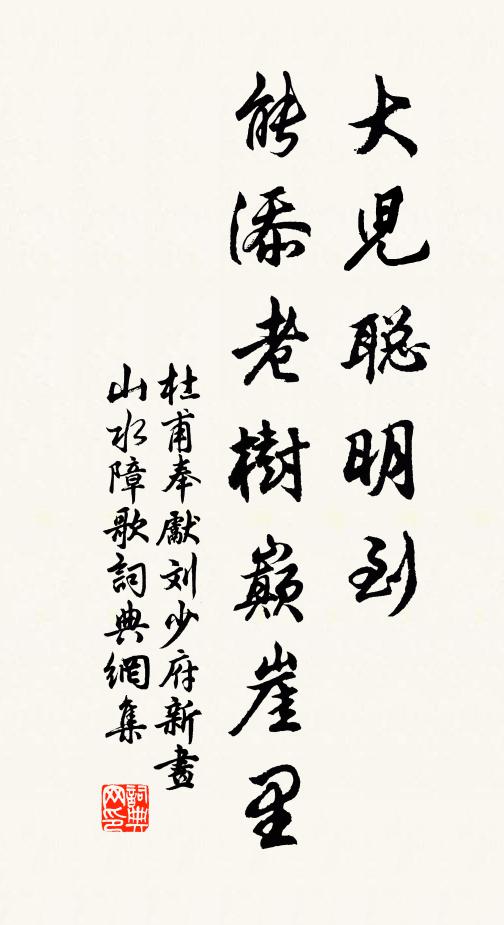 大児聪明到
能添老樹巅崖里
杜甫奉獻刘少府新畫
山水障歌詞典網集
詞典
网印